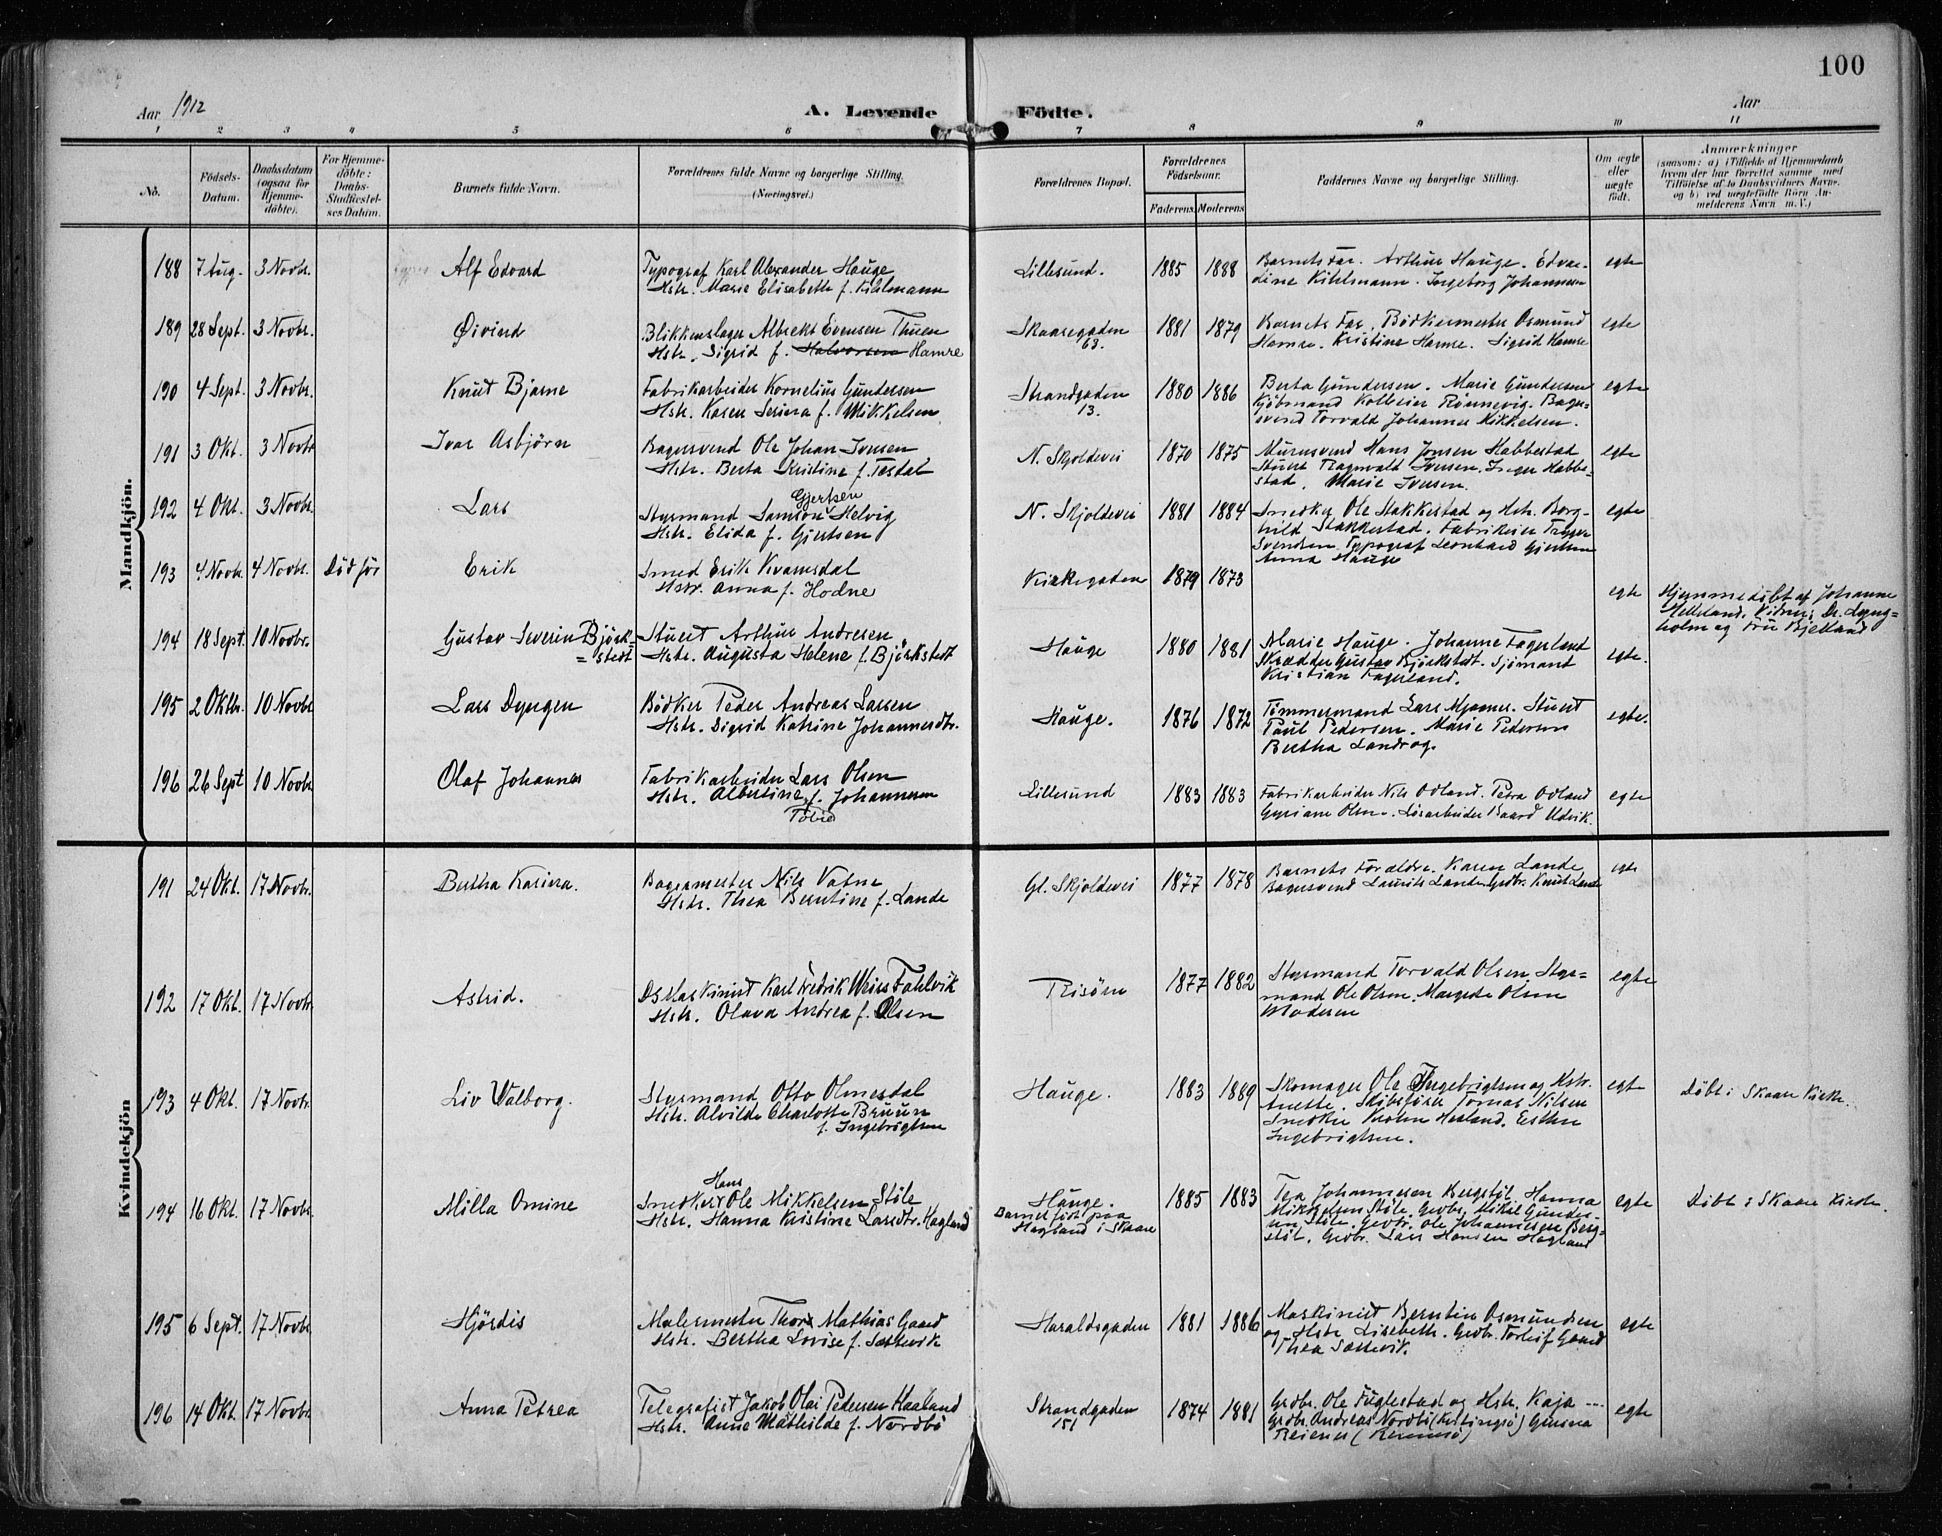 100
Aar 1912
A. Levende Födte.
Aar
1 2 3 4 5 6 7 8 9 10 11
No.
Födsels-
Datum.
Daabsdatum
(ogsaa for
Hjemme-
döbte).
For Hjemme-
döbte:
Daabs-
Stadfæstel-
ses Datum.
Barnets fulde Navn.
Forældrenes fulde Navne og borgerlige Stilling.
(Næringsvei.)
Forældrenes Bopæl.
Forældrenes
Födselsaar.
Faderens. Moderens
Faddernes Navne og borgerlige Stilling.
Om ægte
eller
uægte
födt.
Anmærkninger
(saasom: a) i Tilfælde af Hjemmedaab
hvem der har forrettet samme, med
Tilföielse af to Daabsvidners Navne,
og b) ved uægtefödte Börn An-
melderens Navn m. V.)
Mandkjön.
188 7 Aug. 3 Novbr. Alf Edvard
Typograf Karl Alexander Hauge
Hstr. Marie Elisabeth f. Kihlmann
Lillesund. 1885 1888
Barnets Far. Arthur Hauge. Edvar-
dine Kihlmann. Ingeborg Johannesen
egte
189 28 Sept. 3 Novbr. Øivind
Blikkenslager Albrekt Evensen Thuen
Hstr. Sigrid f. Halvorsen Hamre
Skaaregaden
63.
1881 1879
Barnets Far, Bödkermester Osmund
Hamre. Kristine Hamre. Sigrid Hamre
egte
190 4 Sept. 3 Novbr. Knut Bjarne
Fabrikarbeider Kornelius Gundersen
Hstr. Karen Serina f. Mikkelsen
Strandgaden
13.
1880 1886
Berta Gundersen. Marie Gundersen
Kjöbmand Kolbeier Rönnevig. Bager-
svend Torvald Johannes Mikkelsen.
egte
191 3 Okt. 3 Novbr Ivar Asbjörn
Bagersvend Ole Johan Iversen
Hstr. Berta Kristine f. Tesdal
N. Skjoldevei 1870 1875
Murersvend Hans Jonsen Habbestad
Stuert Ragnvald Iversen. Inger Habbe-
stad. Marie Iversen.
egte
192 4 Okt. 3 Novbr. Lars
Gjertsen
Styrmand Samson Helvig
Hstr. Elida f. Gjertsen
N. Skjoldevei 1881 1884
Snedker Ole Stakkestad og Hstr. Borg-
hild Stakkestad. Fabrikeier
Svendsen. Typograf Leonhard Gjertsen
Anna Hauge
egte
193 4 Novbr. 4 Novbr. Död för Erik
Smed Erik Kvamsdal
Hstr. Anna f. Hodne
Kirkegaden 1879 1873
egte
Hjemmedöbt af Johanne
Helleland. Vidner: Dr. Lyng-
holm og Fru Bjelland
194 18 Sept. 10 Novbr. Gustav Severin Björk-
=stedt
Stuert Arthur Andresen
Hstr. Augusta Helene f. Björkstedt
Hauge 1880 1881
Marie Hauge. Johanne Fagerland
Skrædder Gustav Björkstedt. Sjömand
Kristian Fagerland.
egte.
195 2 Oktbr. 10 Novbr Lars Dyrgen
Bödker Peder Andreas Larsen
Hstr. Sigrid Katrine Johannesdtr.
Hauge. 1876 1872
Timmermand Lars Stuert
Paul Pedersen. Marie Pedersen
Bertha Landrog.
egte.
196 26 Sept 10 Novbr Olaf Johannes
Fabrikarbeider Lars Olsen
Hstr. Albertine f. Johannesen
Lillesund 1883 1883
Fabrikarbeider Nils Odland. Petra Odland
Gyriane Olsen. Lösarbeider Baard Udvik.
egte
Kvindekjön
191 24 Okt. 17 Novbr. Bertha Karina.
Bagermester Nils Vatne
Hstr. Thea Berntine f. Lande
Gl. Skjoldevei 1877 1878
Barnets Forældre. Karen Lande
Bagersvend Laurits Lande. Grdbr. Knut Lande
egte
192 17 Okt. 17 Novbr. Astrid.
DS Maskinist Karl Fredrik Weiss Fahlvik
Hstr. Olava Andrea f. Olsen
Risöen 1877 1882
Styrmand Torvald Olsen. Styr=
mand Ole Olsen. Margrete Olsen
Moderen
egte
193 4 Okt. 17 Novbr. Liv Valborg.
Styrmand Otto Olmesdal
Hstr. Alvilde Charlotte Bruun
f. Ingebrigtsen
Hauge. 1883 1889
Skomager Ole Ingebrigtsen og Hstr.
Anette. Skibsförer Tomas Nilsen
Snedker Hesland. Esther
Ingebrigtsen.
egte
Döbt i Skaare Kirke.
194 16 Okt. 17 Novbr. Milla Omine
Hans
Snedker Ole Mikkelsen Stöle
Hstr. Hanna Kristine Larsdtr. Hagland
Hauge.
Barnet födt paa
Hagland i Skaare
1885 1883
Tea Johannesen Bergstöl. Hanna
Mikkelsen Stöle. Grdbr. Mikel Gunder-
sen Stöle. Grdbr. Ole Johannesen Berg=
stöl. Grdbr. Lars Hansen Hagland
egte
Döbt i Skaare Kirke.
195 6 Sept. 17 Novbr. Hjördis
Malermester Thore Mathias Gaard
Hstr. Bertha Lovise f. Sættevik
Haraldsgaden 1881 1886
Maskinist Berntin Osmundsen
og Hstr Lisebeth. Grdbr. Torleif Gaard
Thea Sættevik.
egte
196 14 Okt. 17 Novbr. Anna Petrea
Telegrafist Jakob Olai Pedersen Haaland
Hstr. Anne Mathilde f. Nordbö
Strandgaden
151
1874 1881
Grdbr. Ole Fuglestad og Hstr. Kaja
Grdbr. Andreas Nordbö
egte